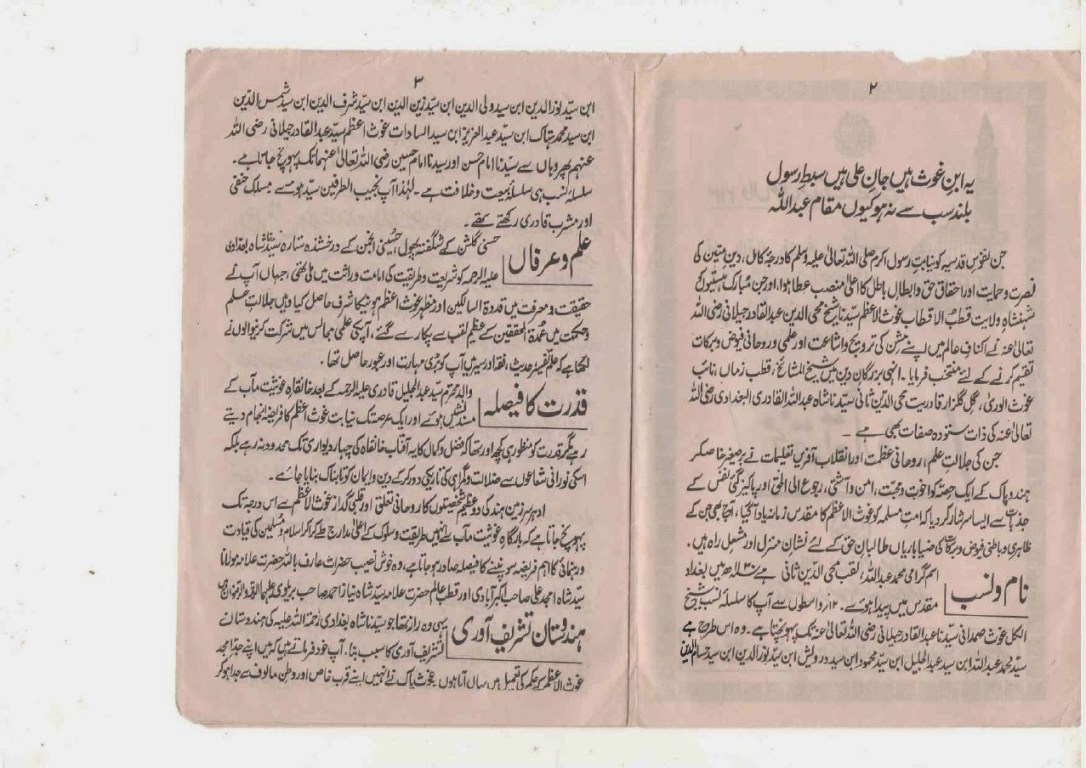 ۲
یہ ابنِ غوث ہیں جانِ علی ہیں سبطِ رسول
بلند سب سے نہ ہو کیوں مقام عبداللہ
جن نفوسِ قدسیہ کو نیابتِ رسول اکرم صلی اللہ تعالیٰ علیہ وسلم کا درجۂ کامل، دینِ متین کی
نصرت و حمایت اور احقاقِ حق و ابطالِ باطل کا اعلیٰ منصب عطا ہوا، اور جن مبارک ہستیوں کو
شہنشاہِ ولایت قطب الاقطاب غوث الاعظم سیدنا شیخ محی الدین عبدالقادر جیلانی رضی اللہ
تعالیٰ عنہ نے اکنافِ عالم میں اپنے مشن کی ترویج و اشاعت اور علمی و روحانی فیوض و برکات
تقسیم کرنے کے لئے منتخب فرمایا۔ انہی بزرگانِ دین میں شیخ المشائخ، قطب زماں، نائب
غوث الوریٰ، گل گلزار قادریت محی الدین ثانی سیدنا شاہ عبداللہ القادری البغدادی رضی اللہ
تعالیٰ عنہ کی ذات ستودہ صفات بھی ہے ۔
جن کی جلالتِ علم، روحانی عظمت اور انقلاب آفریں تعلیمات نے برصغیر خاص کر
ہندو پاک کے ایک حصہ کو اخوت و محبت، امن و آشتی، رجوع الی الحق اور پاکیزگیٔ نفس کے
جذبات سے ایسا سرشار کر دیا کہ امتِ مسلمہ کو غوث الاعظم کا مقدس زمانہ یاد آ گیا، آج بھی جن کے
ظاہری و باطنی فیوض و برکات کی ضیا باریاں طالبانِ حق کے لئے نشانِ منزل اور مشعلِ راہ ہیں۔
نام و نسب اسم گرامی محمد عبداللہ، لقب محی الدین ثانی ہے ھ میں بغداد
مقدس میں پیدا ہوئے۔ واسطوں سے آپ کا سلسلہ نسب شیخ
الکل غوث صمدانی سیدنا عبدالقادر جیلانی رضی اللہ تعالیٰ عنہ تک پہونچتا ہے۔ وہ اس طرح ہے
سید محمد عبداللہ ابن سید عبدالجلیل ابن سید محمود ابن سید درویش ابن سید نور الدین ابن سید حسام الدین
۳
ابن سید نور الدین ابن سید ولی الدین ابن سید زین الدین ابن سید شرف الدین ابن سید شمس الدین
ابن سید محمد ہتاک ابن سید عبدالعزیز ابن سید السادات غوث اعظم سید عبدالقادر جیلانی رضی اللہ
عنہم پھر وہاں سے سیدنا امام حسن اور سیدنا امام حسین رضی اللہ تعالیٰ عنہما تک پہونچ جاتا ہے۔
سلسلۂ نسب ہی سلسلۂ بیعت و خلافت ہے۔ لہٰذا آپ نجیب الطرفین سید ہوئے مسلک حنفی
اور مشرب قادری رکھتے تھے۔
علم و عرفاں حسنی گلشن کے شگفتہ پھول، حسینی انجمن کے درخشندہ ستارہ سیدنا شاہ بغدادی
علیہ الرحمہ کو شریعت و طریقت کی امامت وراثت میں ملی تھی، جہاں آپ نے
حقیقت و معرفت میں قدوۃ السالکین اور مظہر غوث اعظم ہونیکا شرف حاصل کیا وہیں جلالتِ علم
و حکمت میں عمدۃ المحققین کے عظیم لقب سے پکارے گئے، آپکی علمی مجالس میں شرکت کرنیوالوں نے
لکھا ہے کہ علم تفسیر حدیث، فقہ اور سیر میں آپ کو بڑی مہارت اور عبور حاصل تھا۔
قدرت کا فیصلہ والد محترم سید عبدالجلیل قادری علیہ الرحمہ کے بعد خانقاہ غوثیت مآب کے
مسند نشیں ہوئے اور ایک عرصہ تک نیابت غوث اعظم کا فریضہ انجام دیتے
رہے مگر قدرت کو منظور ہی کچھ اور تھا کہ فضل و کمال کا یہ آفتاب خانقاہ کی چہار دیواری تک محدود نہ رہے بلکہ
اسکی نورانی شعاعوں سے ضلالت و گمراہی کی تاریکی دور کر کے دین و ایمان کو تابناک بنایا جائے۔
ادھر سرزمین ہند کی دو عظیم شخصیتوں کا روحانی تعلق اور قلبی لگاؤ غوث الاعظم سے اس درجہ تک
پہونچ جاتا ہے کہ بارگاہِ غوثیت مآب سے انہیں طریقت و سلوک کے اعلیٰ مدارج طے کرا کر اسلام و مسلمین کی قیادت
و رہنمائی کا اہم فریضہ سونپنے کا فیصلہ صادر ہو جاتا ہے، وہ خوش نصیب حضرات عارف باللہ حضرت علامہ مولانا
سید شاہ امجد علی صاحب اکبرآبادی اور قطب عالم حضرت علامہ سید شاہ نیاز احمد صاحب بریلوی علیہما الرحمہ والرضوان ہیں
ہندوستان تشریف آوری یہی وہ راز تھا جو سیدنا شاہ بغدادی رحمۃ اللہ علیہ کی ہندوستان
تشریف آوری کا سبب بنا۔ آپ خود فرماتے ہیں کہ میں اپنے جد امجد
غوث الاعظم کے حکم کی تعمیل میں یہاں آیا ہوں غوث پاک نے انہیں اپنے قرب خاص اور وطن مالوف سے جدا ہو کر